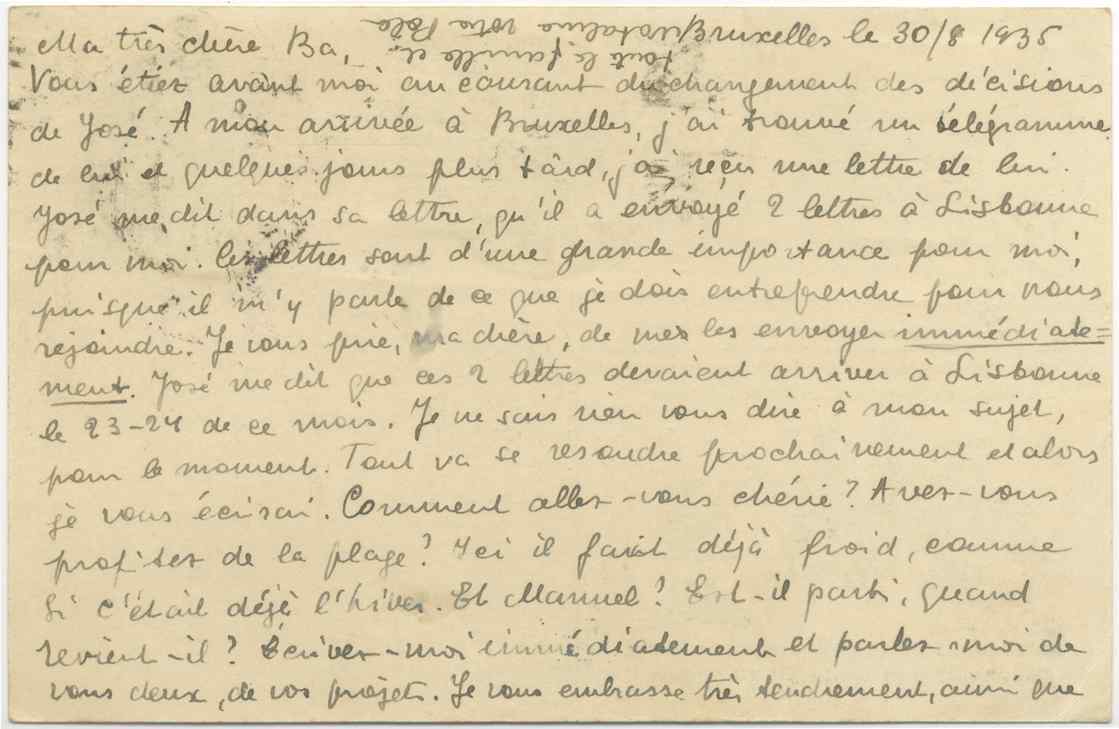 Bruxelles le 30/8 1935
Ma très chère Ba,
Vous étiez avant moi au courant du changement des décisions
de José. A mon arrivée à Bruxelles, j'ai trouvé un télégramme
de lui et quelques jours plus tard, j'ai reçu une lettre de lui.
José me dit dans sa lettre, qu'il a envoyé 2 lettres à Lisbonne
pour moi. Ces lettres sont d'une grande importance pour moi,
puisque il m'y parle de ce que je dois entreprendre pour vous
rejoindre. Je vous prie, ma chère, de me les envoyer immédiate=
ment. José me dit que ces 2 lettres devaient arriver à Lisbonne
le 23-24 de ce mois. Je ne sais rien vous dire à mon sujet,
pour le moment. Tout va se resoudre prochainement et alors
je vous écrirai. Comment allez-vous chérie? Avez-vous
profiter de la plage? Ici il fait déjà froid, comme
si c'était déjà l'hiver. Et Manuel? Est-il parti, quand
revient-il? Ecrivez-moi immédiatement et parlez-moi de
vous deux, de vos projets. Je vous embrasse très tendrement, ainsi que
toute la famille et
votre Pola